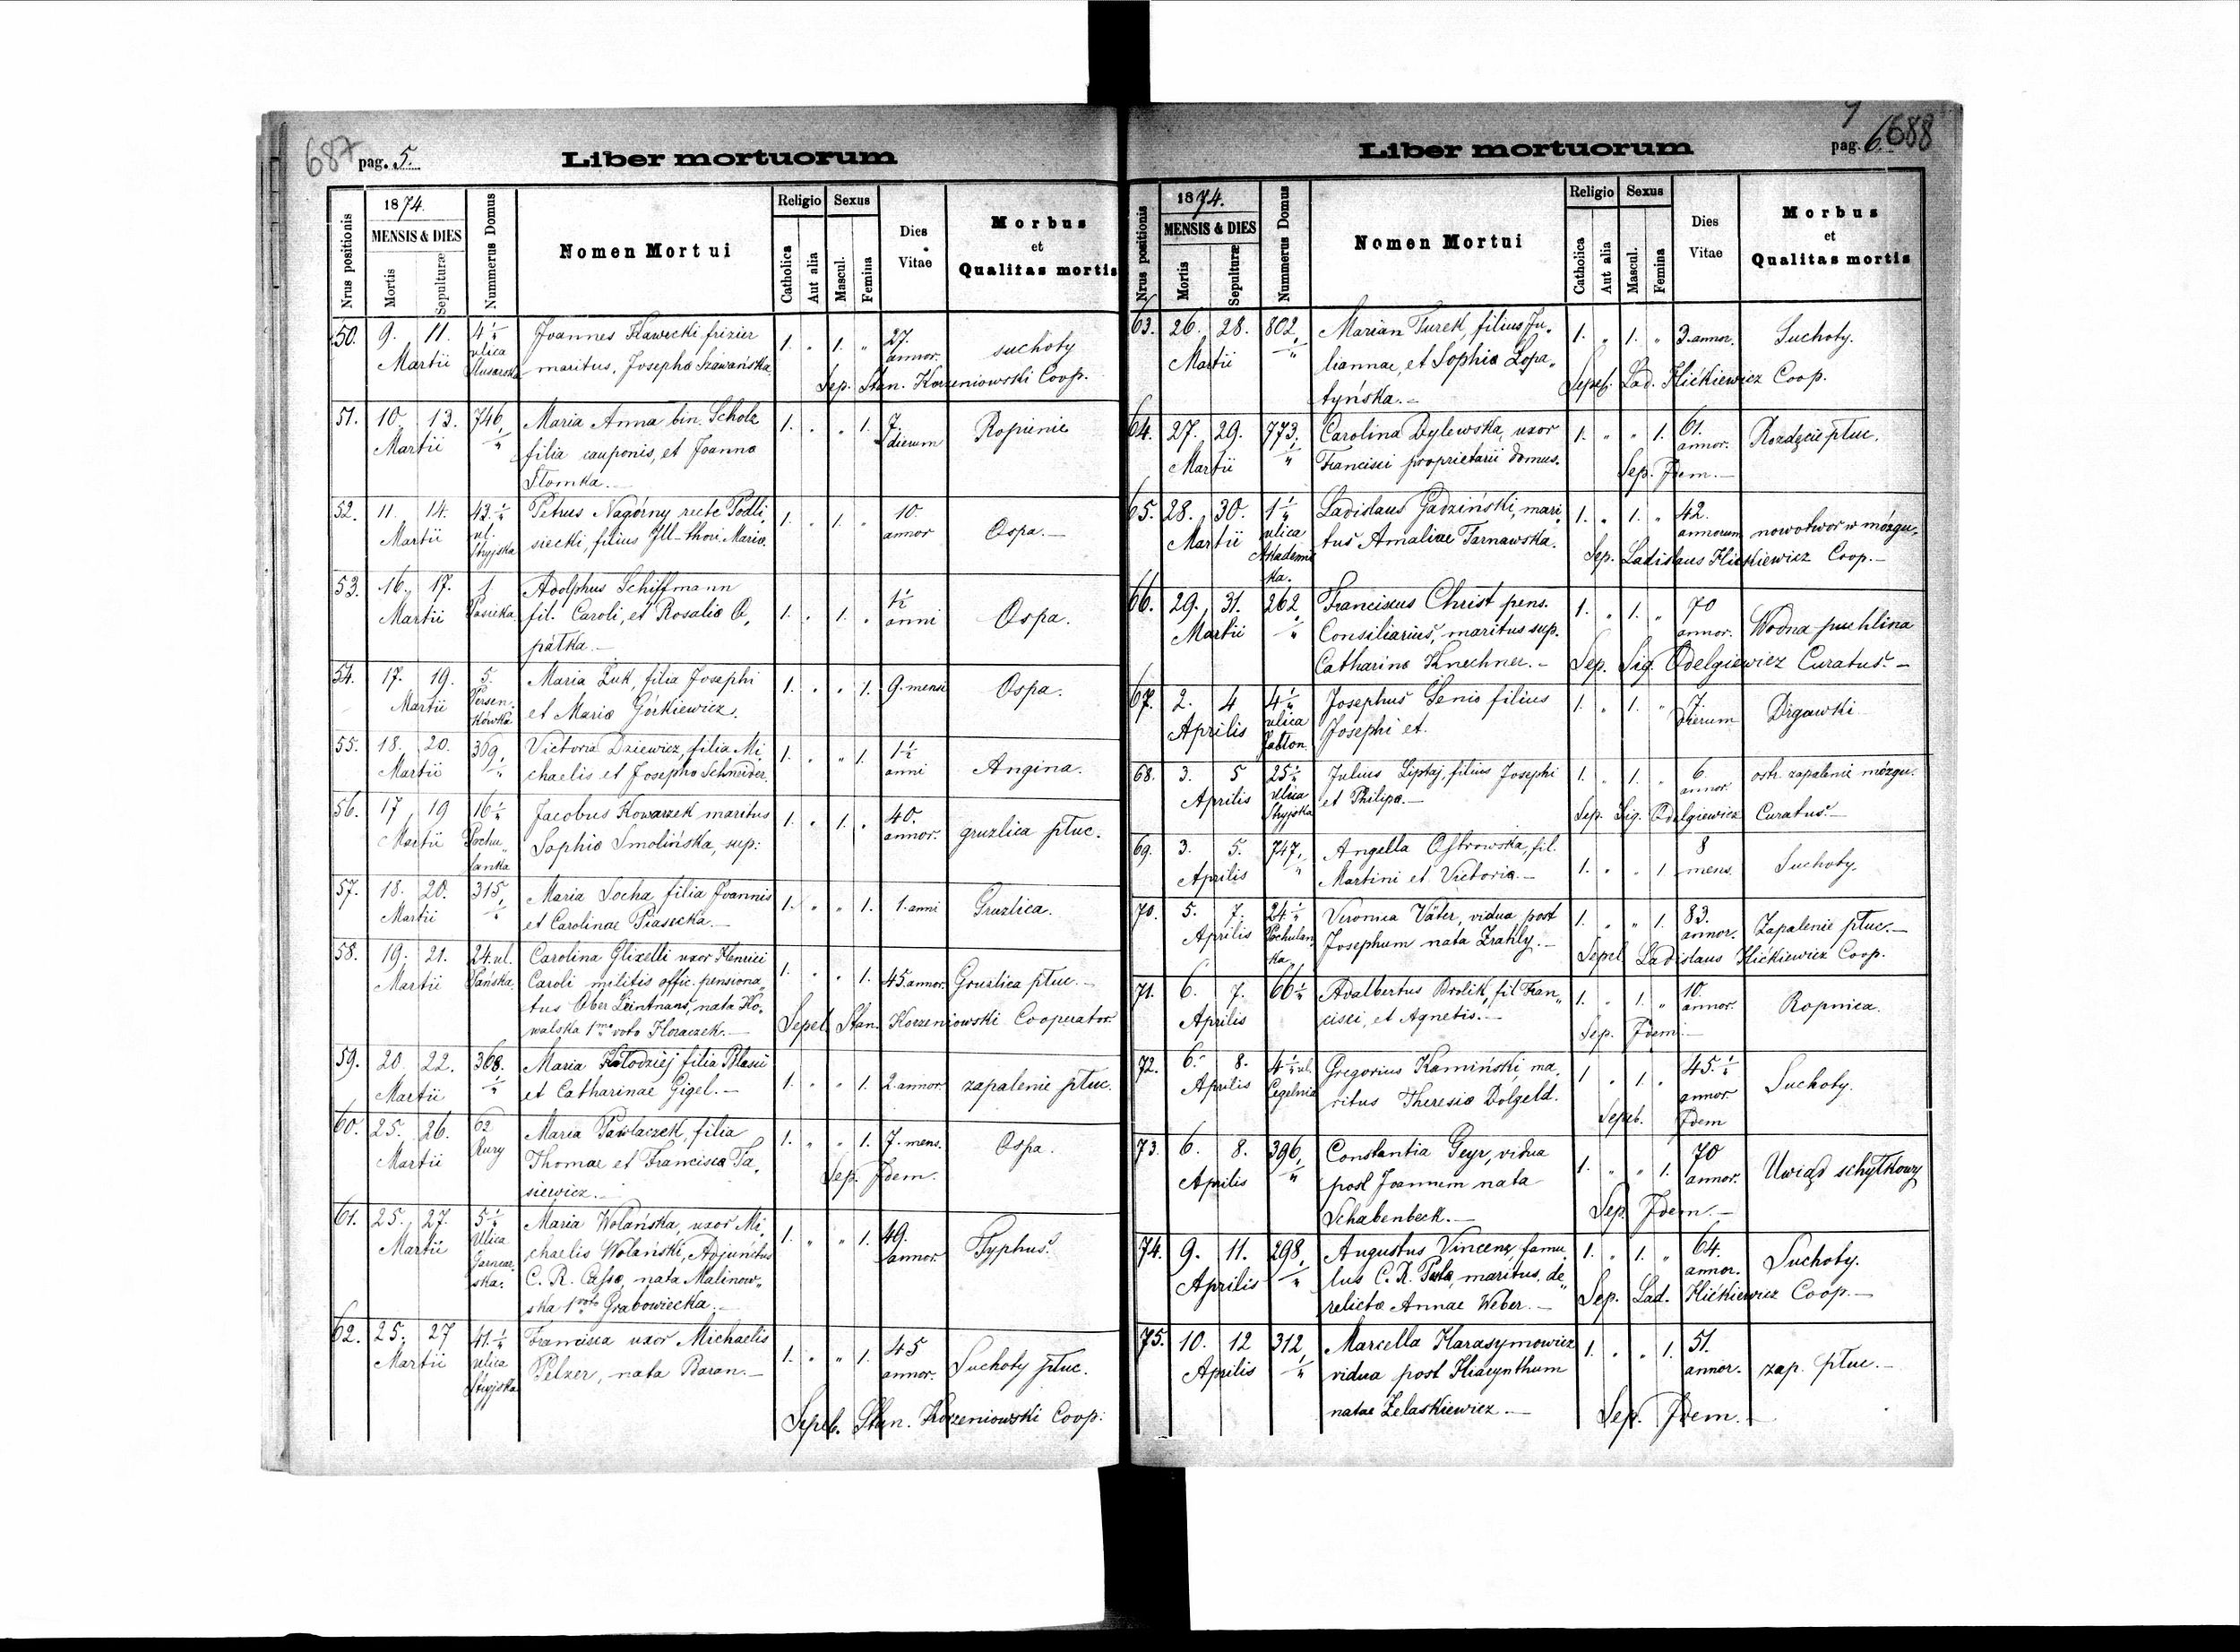 687 pag. 5.
Liber mortuorum
Nrus positionis
1874.
MENSIS & DIES
Mortis
Sepulturæ
Nummerus Domus
Nomen Mortui
Religio
Catholica
Aut alia
Sexus
Mascul.
Femina
Dies Vitae
Morbus et Qualitas mortis
50. 9. 11. 4 1/4 Joannes Sławecki frizier 1. „ 1. „ 27.
Martii ulica maritus, Josepha Szawańska annor. suchoty
Sep. Stan. Korzeniowski Coop.
51. 10. 13. 746 Maria Anna bin. Scholz 1. „ „ 1. 7. Ropienie
Martii 1/4 filia cauponis, et Joanna dierum
Słomka.
52. 11. 14. 43 1/4 Petrus Nagórny recte Podli„ 1. „ 1. „ 10
Martii ul. siecki, filius Ill-thori Maria. annor Ospa.—
Stryjska
53. 16. 17. 1 Adolphus Schiffmann 1 1/2
Martii Pasieka fil. Caroli, et Rosalia O„ 1. „ 1. „ anni Ospa.
patka.—
54. 17. 19. 5. Maria Żuk, filia Josephi 1. „ „ 1. 9. mensi Ospa.
Martii Persen„ et Maria Górkiewicz.
kówka
55. 18. 20. 369 Victoria Dziewicz, filia Mi„ 1. „ „ 1. 1 1/2
Martii 1/4 chaelis et Josepha Schneider. anni Angina.
56. 17 19 16 1/4 Jacobus Kowarzek maritus 1. „ 1. „ 40.
Martii Pochu„ Sophia Smolińska, sup: annor. gruzlica płuc.
lanka
57. 18. 20. 315 Maria Socha, filia Joannis 1. „ „ 1. 1. anni Gruzlica.
Martii 1/4 et Carolinae Piasecka.—
58. 19. 21. 24. ul. Carolina Glixelli uxor Henrici
Martii Pańska. Caroli militis offic. pensiona„ 1. „ „ 1. 45. annor. Gruzlica płuc.—
tus Ober Leintnant, nata Ko„
walska 1mo voto Horaczek.— Sepel. Stan. Korzeniowski Cooperator
59. 20 22. 368. Maria Kołodziej filia Blasii
Martii 1/4 et Catharinae Gigel.— 1. „ „ 1. 2. annor. zapalenie płuc.
60. 25. 26. 62 Maria Pawlaczek, filia 1. „ „ 1. 7. mens. Ospa.
Martii Rury Thomae et Francisca Ta„
siewicz.— Sep. Idem.
61. 25. 27. 5 1/4 Maria Wolańska, uxor Mi„ 1. „ „ 1. 49.
Martii Ulica chaelis Wolański, Adjunctus annor. Typhus.
Garncar„ C. R. Cassa, nata Malinow„
ska. ska 1voto Grabowiecka.—
62. 25. 27 41 1/4 Francisca uxor Michaelis 1. „ „ 1. 45
Martii ulica Pelzer, nata Baran.— annor. Suchoty płuc.
Stryjska
Sepel. Stan. Korzeniowski Coop:
pag. 6. 688
Liber mortuorum
Nrus positionis
1874.
MENSIS & DIES
Mortis
Sepulturæ
Nummerus Domus
Nomen Mortui
Religio
Catholica
Aut alia
Sexus
Mascul.
Femina
Dies Vitae
Morbus et Qualitas mortis
63. 26. 28. 802 Marian Turek, filius Ju„ 1. „ 1. „ 3. annor. Suchoty.
Martii 1/4 liannae, et Sophia Łopa„
tyńska.— Sepel. Lad. Hićkiewicz Coop.
64. 27. 29. 773 Carolina Dylewska, uxor 1. „ „ 1. 61. Rozdęcie płuc.
Martii 1/4 Francisci proprietarii domus. annor.
Sep. Idem.—
65. 28. 30. 1 1/4 Ladislaus Gadziński, mari„ 1. „ 1. „ 42.
Martii ulica tus Amaliae Tarnawska. annorum nowotwor w mózgu.
Akademic
ka. Sep. Ladislaus Hickiewicz Coop.—
66. 29. 31. 262 Franciscus Christ pens. 1. „ 1. „ 70
Martii 1/4 Consiliarius, maritus sup. annor. Wodna puchlina
Catharina Knechner.— Sep. Sig. Odelgiewicz Curatus.—
67. 2. 4 4 1/4 Josephus Genio filius 1. „ 1. „ 7.
Aprilis ulica Josephi et. dierum Drgawki
Jabłon.
68. 3. 5 25 1/4 Julius Liptaj, filius Josephi 1. „ 1. „ 6. ostr. zapalenie mózgu.
Aprilis ulica et Philipa.— annor.
Stryjska Sep. Sig. Odelgiewicz Curatus.—
69. 3. 5. 747 Angella Ostrowska, fil. 8
Aprilis 1/4 Martini et Victoria.— 1. „ „ 1 mens. Suchoty.
70. 5. 7. 24 1/4 Veronica Väter, vidua post 1. „ „ 1. 83.
Aprilis Pochulan„ Josephum nata Zrahly.— annor. Zapalenie płuc.—
ka Sepel Ladislaus Hićkiewicz Coop.
71. 6. 7. 66 1/4 Adalbertus Brolik, fil Fran„ 1. „ 1. „ 10. Ropnica.
Aprilis cisci, et Agnetis.— annor.
Sep. Idem.—
72. 6. 8. 4 1/4 ul. Gregorius Kamiński, ma„ 1 „ 1. „ 45. 1/4
Aprilis Cegelnia ritus Theresia Dolgeld. annor. Suchoty.
Sepel. Idem
73. 6. 8. 396 Constantia Geyr, vidua 1. „ „ 1. 70
Aprilis 1/4 post Joannem nata annor. Uwiąd schyłkowy
Schabenbeck.— Sep. Idem.—
74. 9. 11. 298 Augustus Vincenz, famu„ 1. „ 1. „ 64. Suchoty.
Aprilis 1/4 lus C. R. Posta, maritus, de„ annor.
relicta Annae Weber.— Sep. Lad. Hićkiewicz Coop.—
75. 10. 12 312 Marcella Harasymowicz 1. „ „ 1. 51.
Aprilis 1/4 vidua post Hiacynthum annor. zap. płuc.—
natae Zelaskiewicz.— Sep. Idem.—